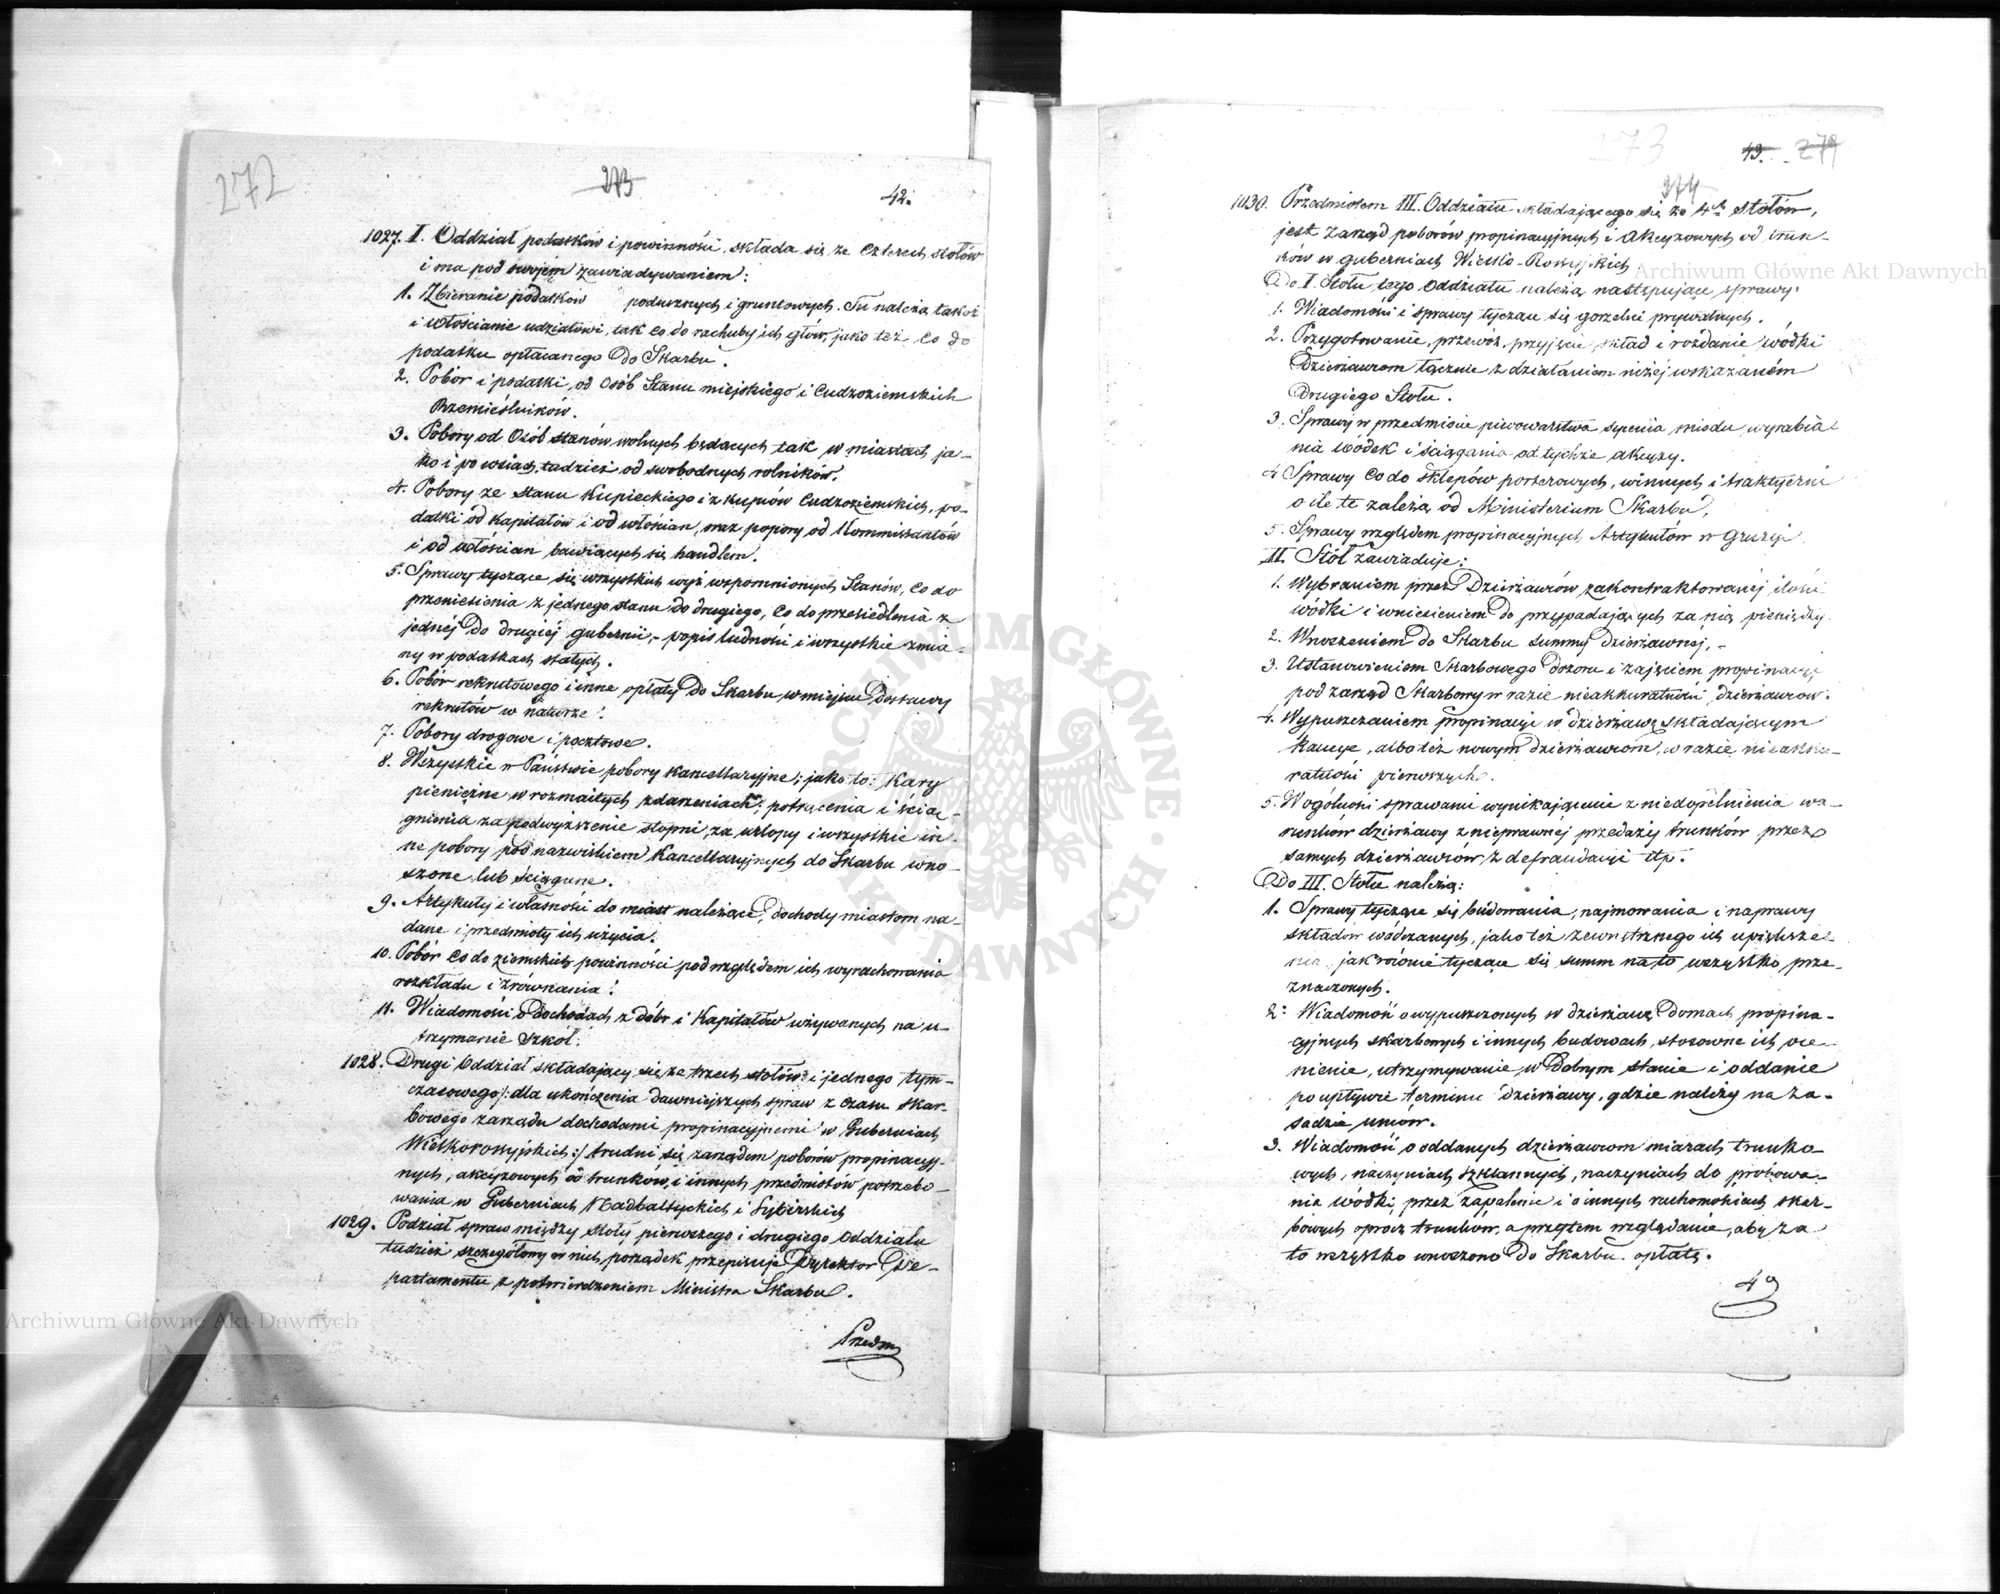 272
273
42.
1027. I. Oddział podatków i powinności, składa się ze czterech stołów
i ma pod swojém zawiadywaniem:
1. Zbieranie podatków podusznych i gruntowych. Tu należą takoż
i włościanie udziałowi, tak co do rachuby ich głów, jako też co do
podatku opłacanego do Skarbu.
2. Pobór i podatki, od Osób Stanu miejskiego i Cudzoziemskich
Rzemieślników.
3. Pobory od Osób stanów wolnych będących tak w miastach ja-
ko i po wsiach, tudzież od swobodnych rolników.
4. Pobory ze Stanu Kupieckiego i z Kupców Cudzoziemskich, po-
datki od Kapitałów i od włościan, oraz popory od Kommissantów
i od włościan bawiących się handlem.
5. Sprawy tyczące się wszystkich wyż wspomnionych Stanów, co do
przeniesienia z jednego stanu do drugiego, co do przesiedlenia z
jednéj do drugiéj gubernii, popis ludności i wszystkie zmia-
ny w podatkach stałych.
6. Pobór rekrutowego i inne opłaty do Skarbu w miejsce Dostawy
rekrutów w naturze.
7. Pobory drogowe i pocztowe.
8. Wszystkie w Państwie pobory Kancellaryjne; jako to: Kary
pieniężne w rozmaitych zdarzeniach; potrącenia i ścią-
gnienia za podwyższenie stopni, za urlopy i wszystkie in-
ne pobory pod nazwiskiem Kancellaryjnych do Skarbu wno-
szone lub ściągane.
9. Artykuły i własności do miast należące, dochody miastom na-
dane i przedmioty ich użycia.
10. Pobór co do ziemskich powinności pod względem ich wyrachowania
rozkładu i zrównania.
11. Wiadomości o dochodach z dóbr i Kapitałów używanych na u-
trzymanie Szkół.
1028. Drugi Oddział składający się ze trzech stołów i jednego tym-
czasowego /: dla ukończenia dawniejszych spraw z czasu skar-
bowego zarządu dochodami propinacyjnemi w Guberniach
Wielkorossyjskich :/ trudni się zarządem poborów propinacyj-
nych, akcyzowych od trunków, i innych przedmiotów potrzebo-
wania w Guberniach Nadbałtyckich i Syberskich
1029. Podział spraw między stoły pierwszego i drugiego Oddziału
tudzież szczegółowy w nich porządek przepisuje Dyrektor De-
partamentu z potwierdzeniem Ministra Skarbu.
Przedm
273
43. 274
374
1030. Przedmiotem III. Oddziału składającego się ze 4ch Stołów,
jest Zarząd poborów propinacyjnych i Akcyzowych od trun-
ków w guberniach Wielko-Rossyjskich
Do I. Stołu tego Oddziału należą następujące sprawy.
1. Wiadomości i sprawy tyczące się gorzelni prywatnych.
2. Przygotowanie, przewóz, przyjęcie, skład i rozdanie wódki
Dzierżawcom łącznie z działaniem niżéj wskazaném
Drugiego Stołu.
3. Sprawy w przedmiocie piwowarstwa sycenia miodu, wyrabia-
nia wódek i ściągania od tychże akcyzy.
4. Sprawy co do sklepów porterowych, winnych i traktyerni
o ile te zależą od Ministerium Skarbu,
5. Sprawy względem propinacyjnych Artykułów w Gruzyi
II. Stół zawiaduje:
1. Wybraniem przez Dzierżawców zakontraktowanéj ilości
wódki i wniesieniem do przypadających za nią pieniędzy.
2. Wnoszeniem do Skarbu summy dzierżawnéj, -
3. Ustanowieniem Skarbowego dozoru i zajęciem propinacyj
pod zarząd Skarbowy w razie nieakkuratności dzierżawców.
4. Wypuszczaniem propinacyi w dzierżawę składającym
Kaucye, albo też nowym dzierżawcom, w razie nieakku-
ratności pierwszych.
5. W ogólności sprawami wynikającemi z niedopełnienia wa-
runków dzierżawy z nieprawnéj przedaży trunków przez
samych dzierżawców z defraudacyi itp.
Do III. Stołu należą:
1. Sprawy tyczące się budowania, najmowania i naprawy
składów wódczanych, jako też zewnętrznego ich upiększe-
nia, jak równie tyczące się summ na to wszystko prze-
znaczonych.
2. Wiadomość o wypuszczonych w dzierżawę Domach propina-
cyjnych skarbowych i innych budowach, stosowne ich oce-
nienie, utrzymywanie w Dobrym stanie i oddanie
po upływie terminu dzierżawy, gdzie należy na za-
sadzie umów.
3. Wiadomość o oddanych dzierżawcom miarach trunko-
wych, naczyniach szklannych, naczyniach do próbowa-
nia wódki, przez zapalenie i o innych ruchomościach skar-
bowych oprócz trunków, a przytem względanie, aby za
to wszystko wnoszono do Skarbu opłatę.
4°
Archiwum Główne Akt Dawnych
Archiwum Główne Akt Dawnych
ARCHIWUM GŁÓWNE AKT DAWNYCH